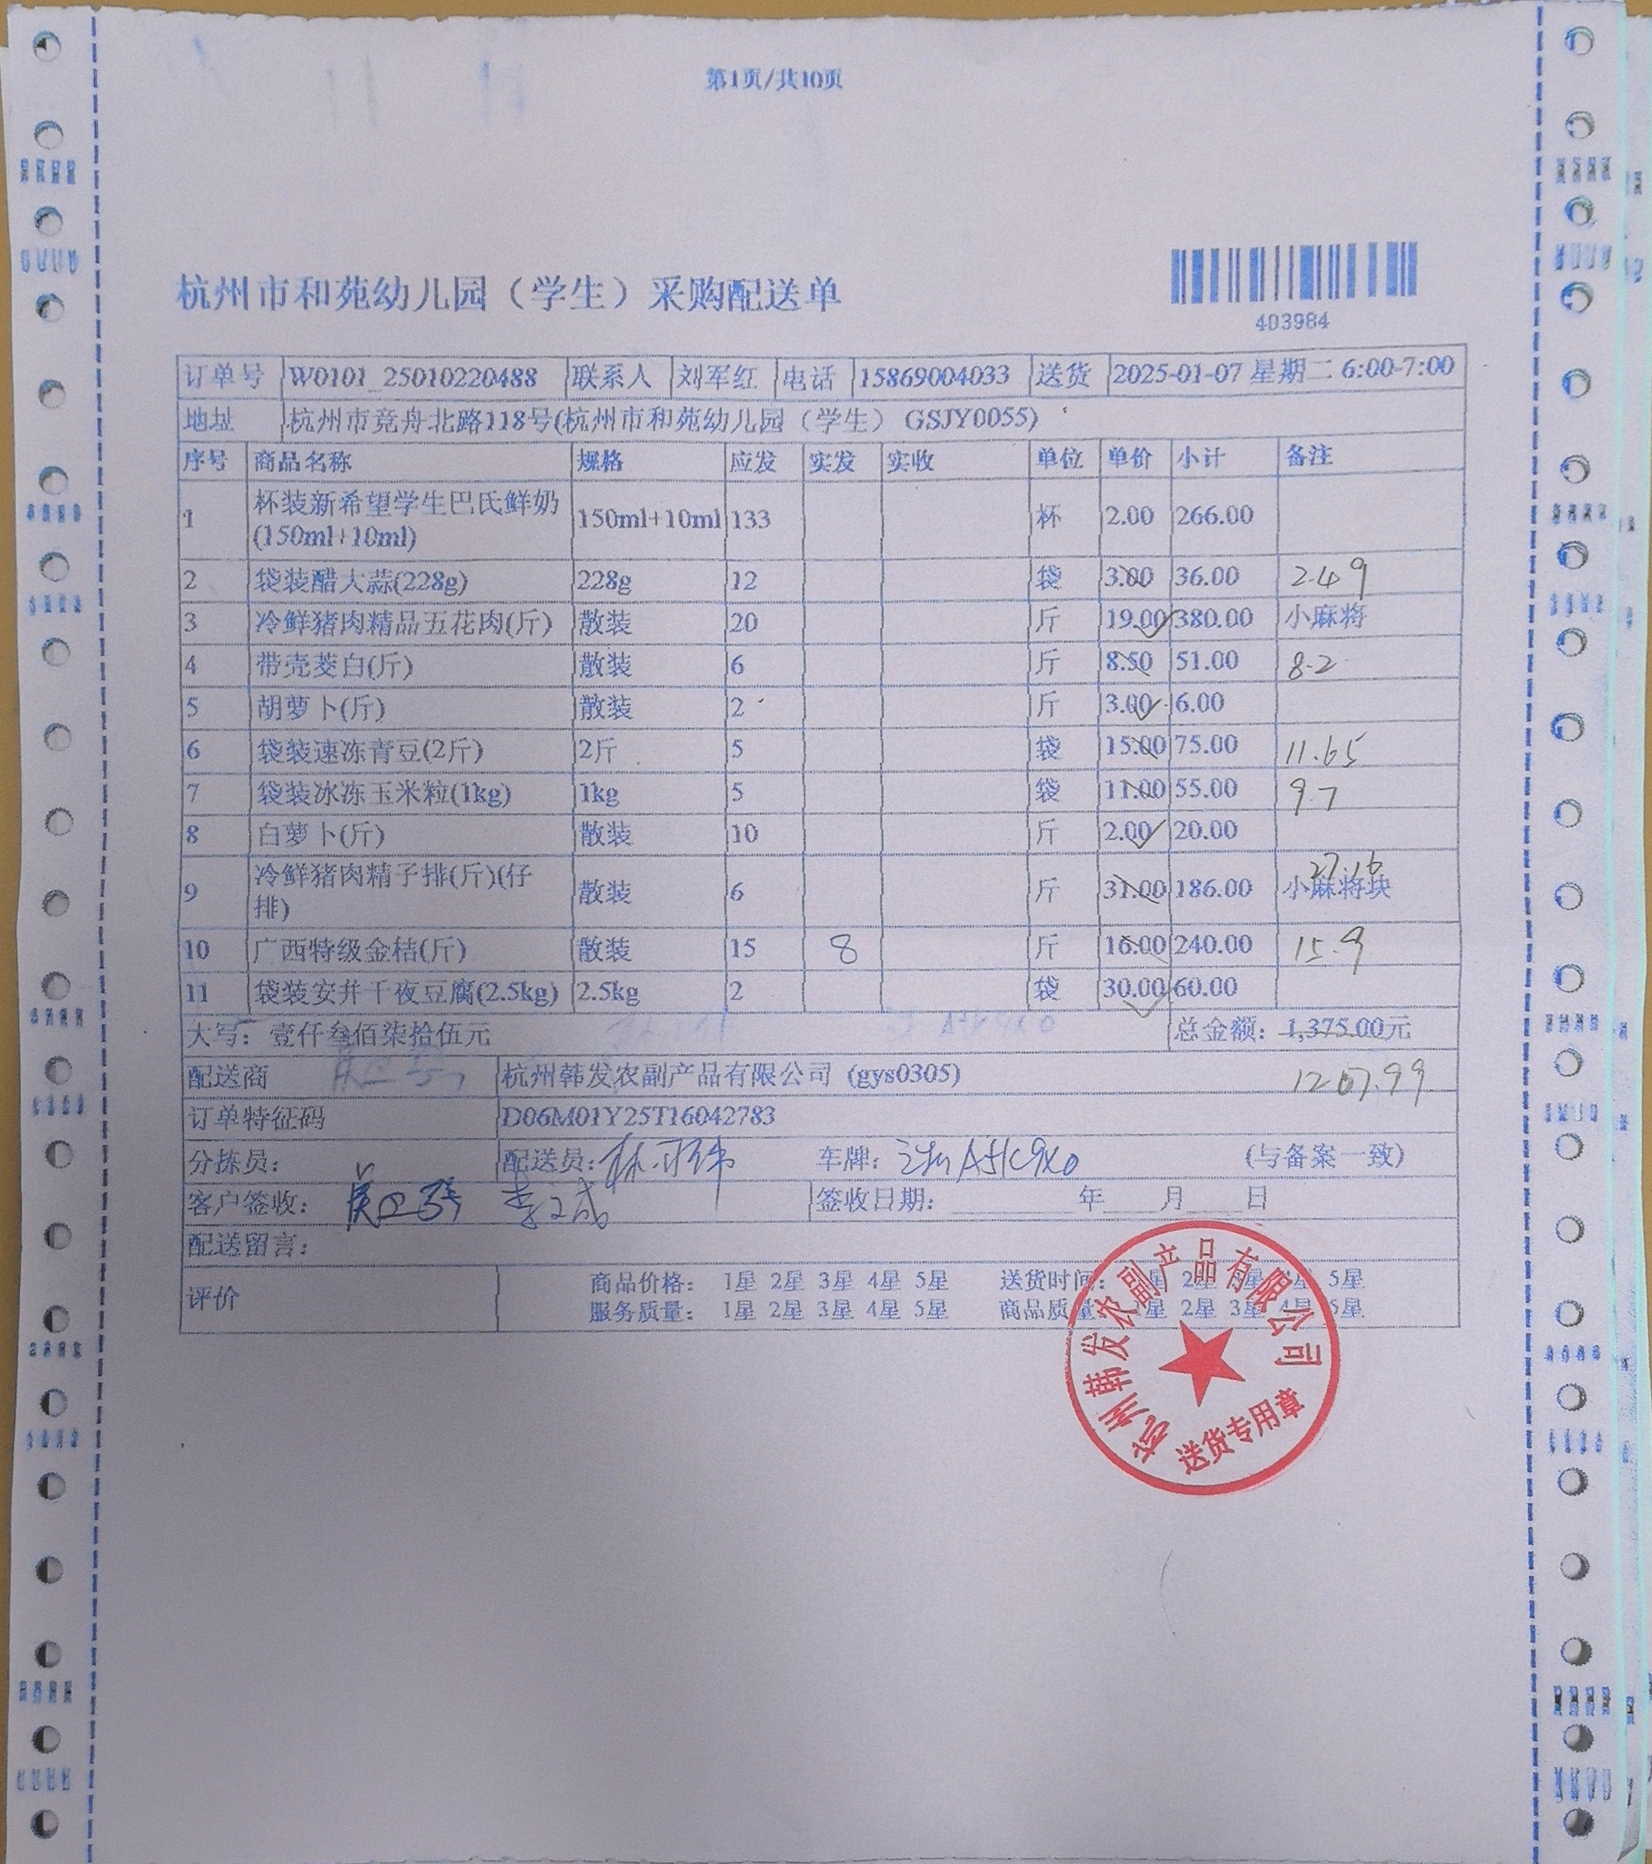 第1页/共10页
杭州市和苑幼儿园（学生）采购配送单
403984
订单号 W0101_25010220488 联系人 刘军红 电话 15869004033 送货 2025-01-07 星期二 6:00-7:00
地址 杭州市竞舟北路118号(杭州市和苑幼儿园（学生） GSJY0055)
序号 商品名称 规格 应发 实发 实收 单位 单价 小计 备注
1 杯装新希望学生巴氏鲜奶(150ml+10ml) 150ml+10ml 133 杯 2.00 266.00
2 袋装醋大蒜(228g) 228g 12 袋 3.00 36.00 2.49
3 冷鲜猪肉精品五花肉(斤) 散装 20 斤 19.00 380.00 小麻将
4 带壳茭白(斤) 散装 6 斤 8.50 51.00 8.2
5 胡萝卜(斤) 散装 2 斤 3.00 6.00
6 袋装速冻青豆(2斤) 2斤 5 袋 15.00 75.00 11.65
7 袋装冰冻玉米粒(1kg) 1kg 5 袋 11.00 55.00 9.7
8 白萝卜(斤) 散装 10 斤 2.00 20.00
9 冷鲜猪肉精子排(斤)(仔排) 散装 6 斤 31.00 186.00 小麻将块 27.16
10 广西特级金桔(斤) 散装 15 8 斤 16.00 240.00 15.9
11 袋装安井千夜豆腐(2.5kg) 2.5kg 2 袋 30.00 60.00
大写：壹仟叁佰柒拾伍元 总金额：1,375.00元
配送商 杭州韩发农副产品有限公司 (gys0305) 1207.99
订单特征码 D06M01Y25T16042783
分拣员： 配送员： 车牌： (与备案一致)
客户签收： 签收日期： 年 月 日
配送留言：
评价 商品价格： 1星 2星 3星 4星 5星 送货时间： 1星 2星 3星 4星 5星
服务质量： 1星 2星 3星 4星 5星 商品质量： 1星 2星 3星 4星 5星
杭州韩发农副产品有限公司
送货专用章